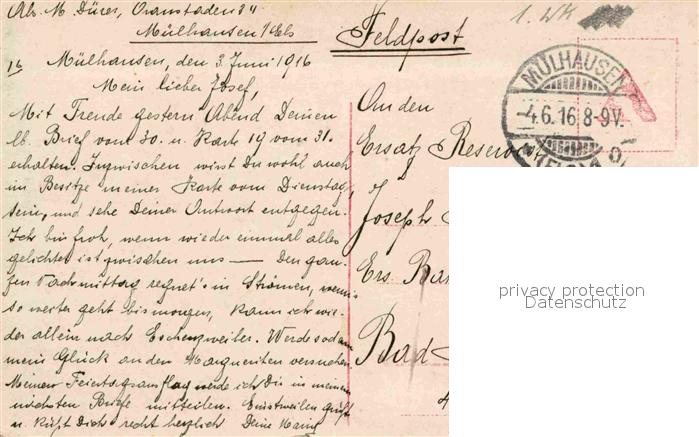 Abs. M. Dürer, Oranstaden 34
Mülhausen i/Els
Feldpost
1. WK
16 Mülhausen, den 3. Juni 1916
Mein lieber Josef,
Mit Freude gestern Abend Deinen
lb. Brief vom 30. u. Karte 19 vom 31.
erhalten. Inzwischen wirst Du wohl auch
im Besitze meiner Karte vom Dienstag
sein, und sehe Deiner Antwort entgegen.
Ich bin froh, wenn wieder einmal alles
gelichtet ist zwischen uns — Den gan-
zen Nachmittag regnet's in Strömen, wenn's
so weiter geht bis morgen, kann ich wie-
der allein nach Eschenzweiler. Werde sodann
mein Glück an den Margueriten versuchen
Meinen Feiertagsausflug werde ich Dir in meinem
nächsten Briefe mitteilen. Einstweilen grüßt
u. küßt Dich recht herzlich Deine
MÜLHAUSEN
-4.6.16 8-9V.
An den
Ersatz Reserv
Joseph
Ers. Bat
Bad
4
privacy protection
Datenschutz